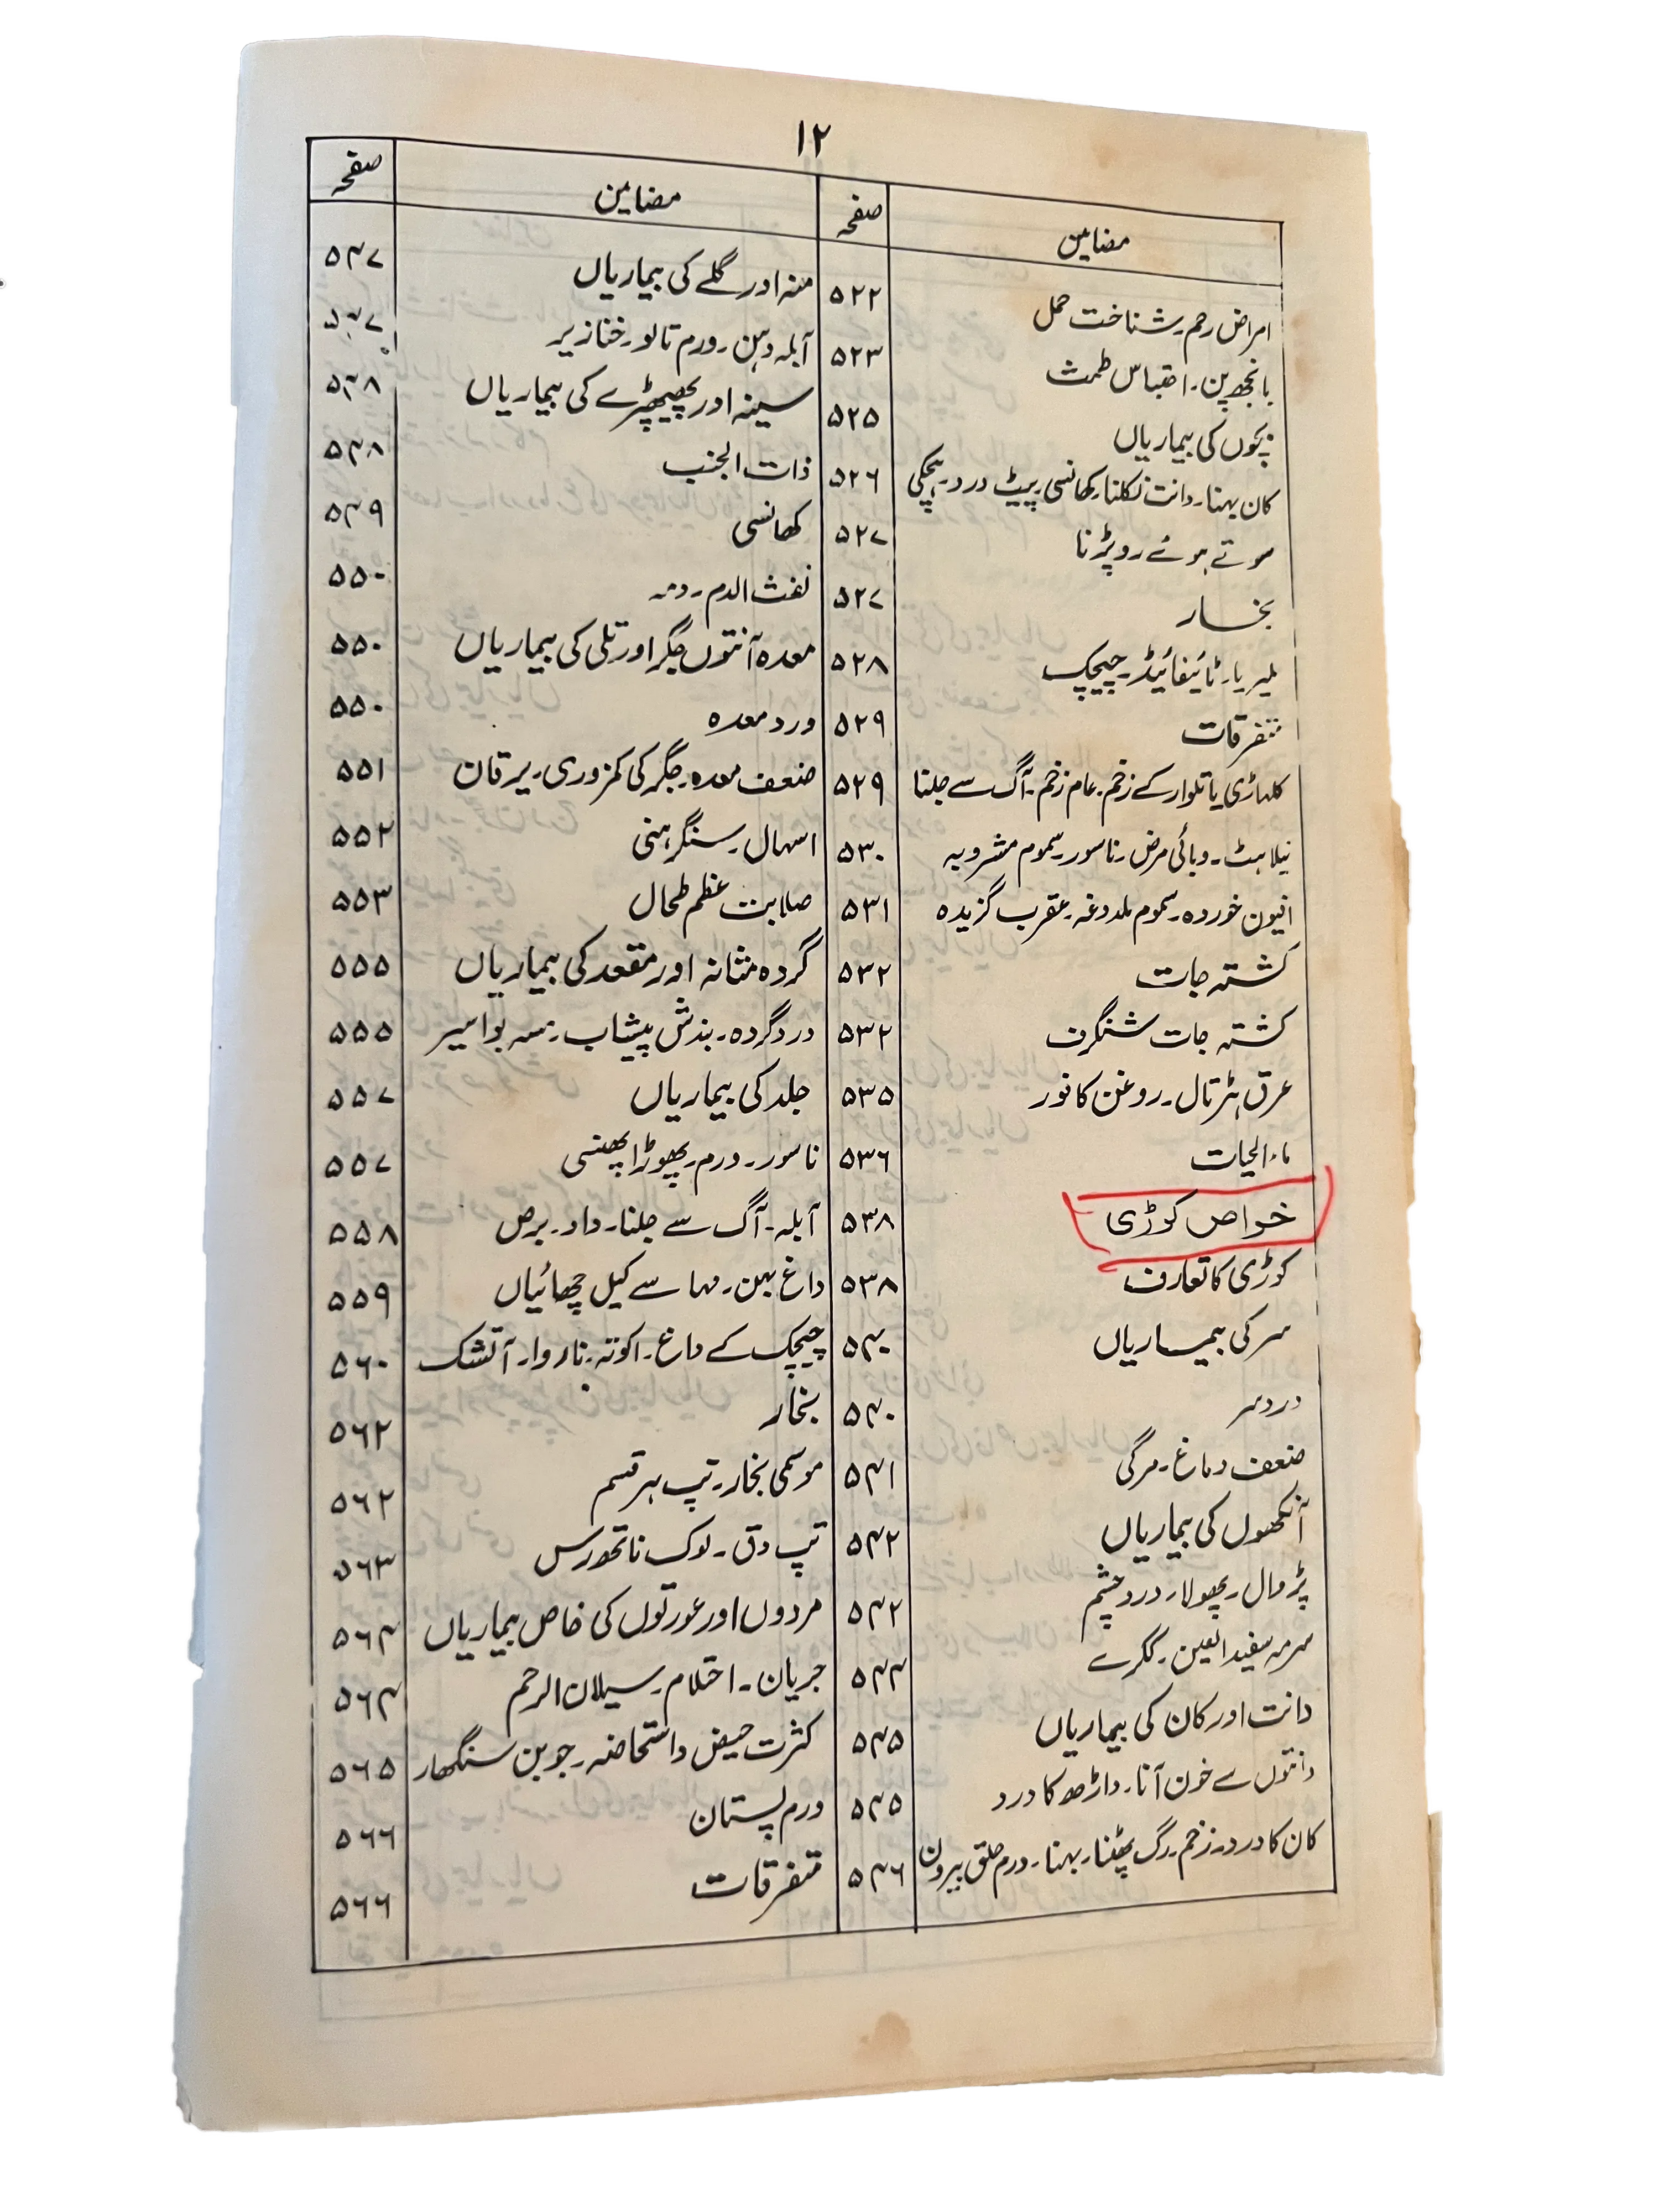 ۱۲
مضامین صفحہ
امراض رحم۔ شناخت حمل ۵۲۲
بانجھ پن۔ احتباس طمث ۵۲۳
بچوں کی بیماریاں ۵۲۵
کان بہنا۔ دانت نکلنا۔ کھانسی۔ پیٹ درد۔ ہچکی ۵۲۶
سوتے ہوئے رو پڑنا ۵۲۷
بخار ۵۲۷
ملیریا۔ ٹائیفائیڈ۔ چیچک ۵۲۸
متفرقات ۵۲۹
کلہاڑی یا تلوار کے زخم۔ عام زخم۔ آگ سے جلنا ۵۲۹
نیلاہٹ۔ وبائی مرض۔ ناسور۔ سموم مشروبہ ۵۳۰
افیون خوردہ۔ سموم ملدوغہ۔ عقرب گزیدہ ۵۳۱
کشتہ جات ۵۳۲
کشتہ جات شنگرف ۵۳۲
عرق ہڑتال۔ روغن کافور ۵۳۵
ماء الحیات ۵۳۶
خواص کوڑی ۵۳۸
کوڑی کا تعارف ۵۳۸
سر کی بیماریاں ۵۴۰
درد سر ۵۴۰
ضعف دماغ۔ مرگی ۵۴۱
آنکھوں کی بیماریاں ۵۴۲
پڑوال۔ پھولا۔ درد چشم ۵۴۲
سرمہ مفید العین۔ ککرے ۵۴۴
دانت اور کان کی بیماریاں ۵۴۵
دانتوں سے خون آنا۔ داڑھ کا درد ۵۴۵
کان کا درد۔ زخم۔ رگ پھٹنا۔ بہنا۔ ورم حلق بیرون ۵۴۶
مضامین صفحہ
منہ اور گلے کی بیماریاں ۵۴۷
آبلہ دہن۔ ورم تالو۔ خنازیر ۵۴۷
سینہ اور پھیپھڑے کی بیماریاں ۵۴۸
ذات الجنب ۵۴۸
کھانسی ۵۴۹
نفث الدم۔ دمہ ۵۵۰
معدہ آنتوں جگر اور تلی کی بیماریاں ۵۵۰
درد معدہ ۵۵۰
ضعف معدہ۔ جگر کی کمزوری۔ یرقان ۵۵۱
اسہال۔ سنگرہنی ۵۵۲
صلابت عظم طحال ۵۵۳
گردہ مثانہ اور مقعد کی بیماریاں ۵۵۵
درد گردہ۔ بندش پیشاب۔ مسہ بواسیر ۵۵۵
جلد کی بیماریاں ۵۵۷
ناسور۔ ورم۔ پھوڑا پھنسی ۵۵۷
آبلہ۔ آگ سے جلنا۔ داد۔ برص ۵۵۸
داغ بہن۔ مہاسے کیل چھائیاں ۵۵۹
چیچک کے داغ۔ اکوتہ۔ ناروا۔ آتشک ۵۶۰
بخار ۵۶۲
موسمی بخار۔ تپ ہر قسم ۵۶۲
تپ دق۔ لوک ناتھ رس ۵۶۳
مردوں اور عورتوں کی خاص بیماریاں ۵۶۴
جریان۔ احتلام۔ سیلان الرحم ۵۶۴
کثرت حیض و استحاضہ۔ جوبن سنگھار ۵۶۵
ورم پستان ۵۶۶
متفرقات ۵۶۶